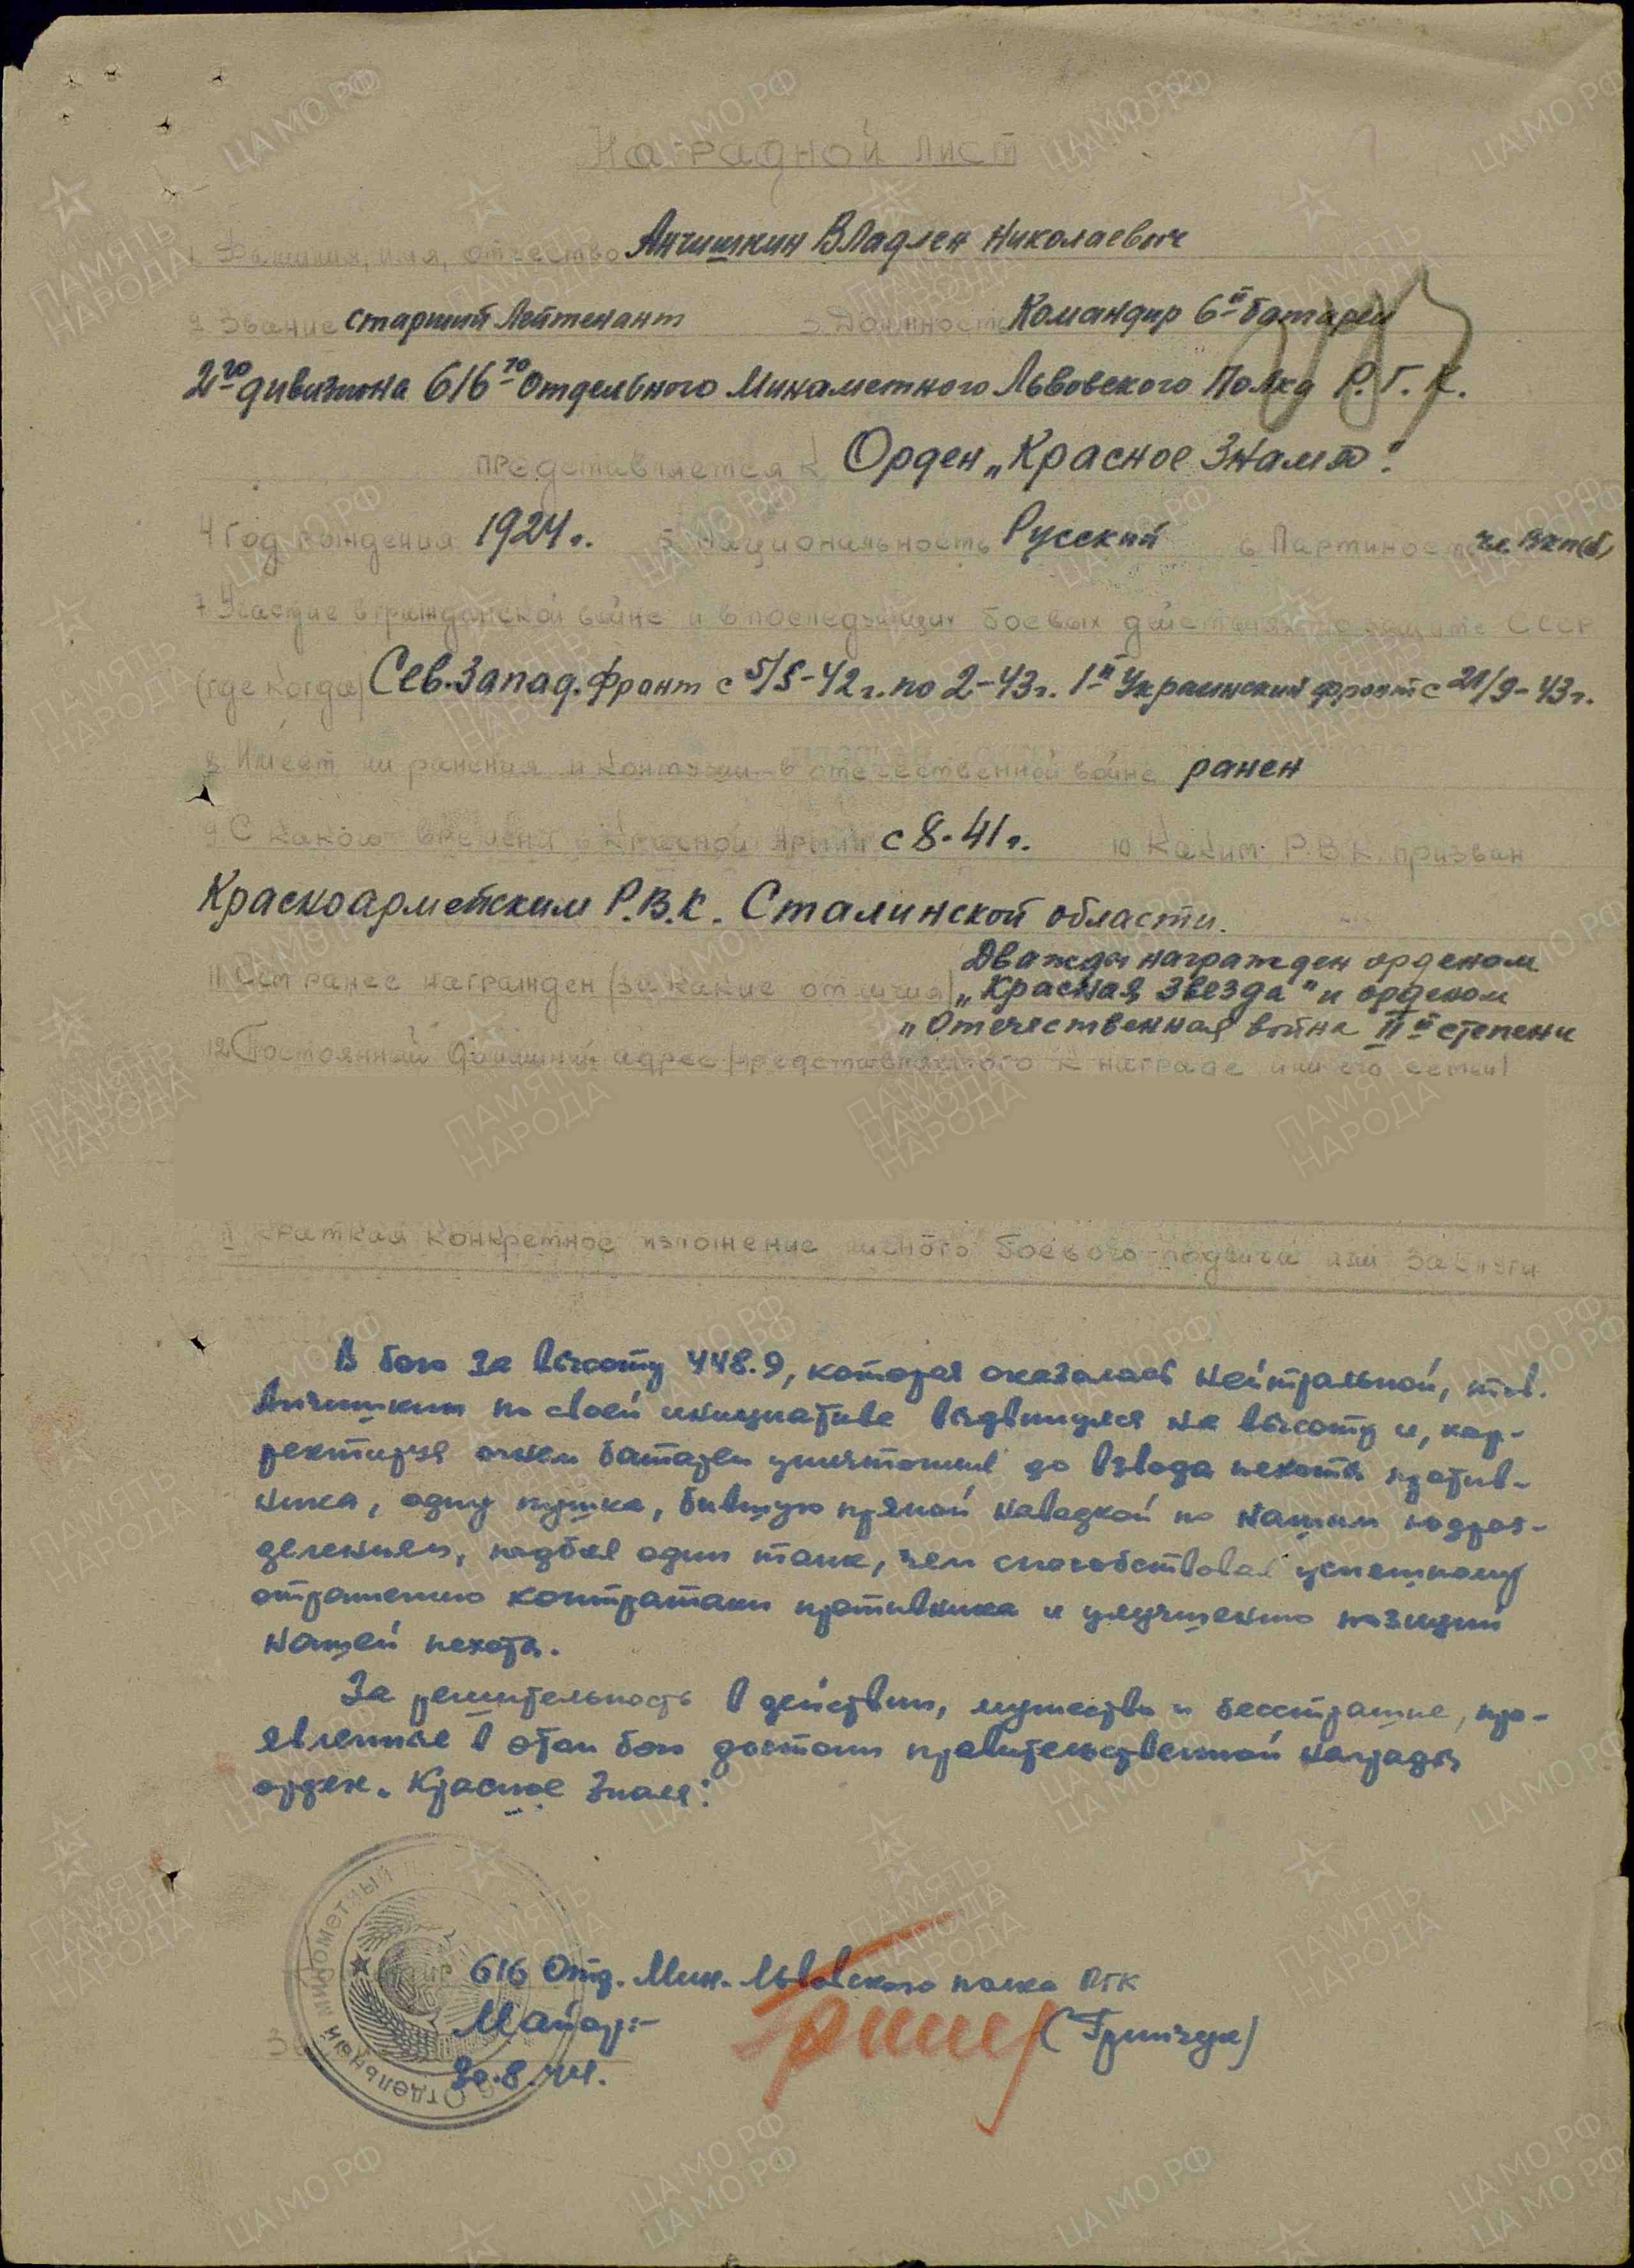 Наградной лист
1 Фамилия, имя, отчество Анчишкин Владлен Николаевич
2 Звание старший Лейтенант 3 Должность Командир 6й батареи
2го дивизиона 616го Отдельного Минометного Львовского Полка Р.Г.К.
представляется к Орден „Красное Знамя".
4 Год рождения 1924г. 5 Национальность Русский 6 Партийность чл. ВКП(б)
7 Участие в гражданской войне и в последующих боевых действиях по защите СССР
(где когда) Сев.Запад.Фронт с 5/5-42г. по 2-43г. 1й Украинский фронт с 21/9-43г.
8 Имеет ли ранения и контузии в отечественной войне ранен
9 С какого времени в Красной Армии с 8-41г. 10 Каким Р.В.К. призван
Красноармейским Р.В.К. Сталинской области.
Дважды награжден орденом
11 Чем ранее награжден (за какие отличия) „Красная Звезда" и орденом
„Отечественная война II й степени
12 Постоянный домашний адрес представляемого к награде или его семьи)
I Краткая конкретное изложение личного боевого подвига или заслуги
В бою за высоту 448.9, которая оказалась нейтральной, тов.
Анчишкин по своей инициативе выдвинулся на высоту и, кор-
ректируя огнем батареи уничтожил до взвода пехоты против-
ника, одну пушка, бившую прямой наводкой по нашим подраз-
делениям, подбил один танк, чем способствовал успешному
отражению контратаки противника и улучшению позиций
нашей пехоты.
За решительность в действии, мужество и бесстрашие, про-
явленные в этом бою достоин правительственной награды
орден „Красное Знамя".
616 Отд. Мин. Львовского полка РГК
Майор:- (Гринчук)
30.8.44.
Отдельный минометный
ЦАМО РФ
ПАМЯТЬ НАРОДА